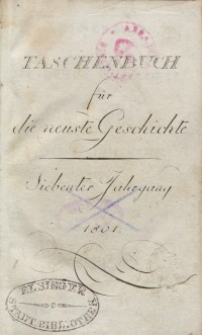 TASCHENBUCH
für
die neuste Geschichte
Siebenter Jahrgang
1801.
ELBINGER
STADTBIBLIOTHEK